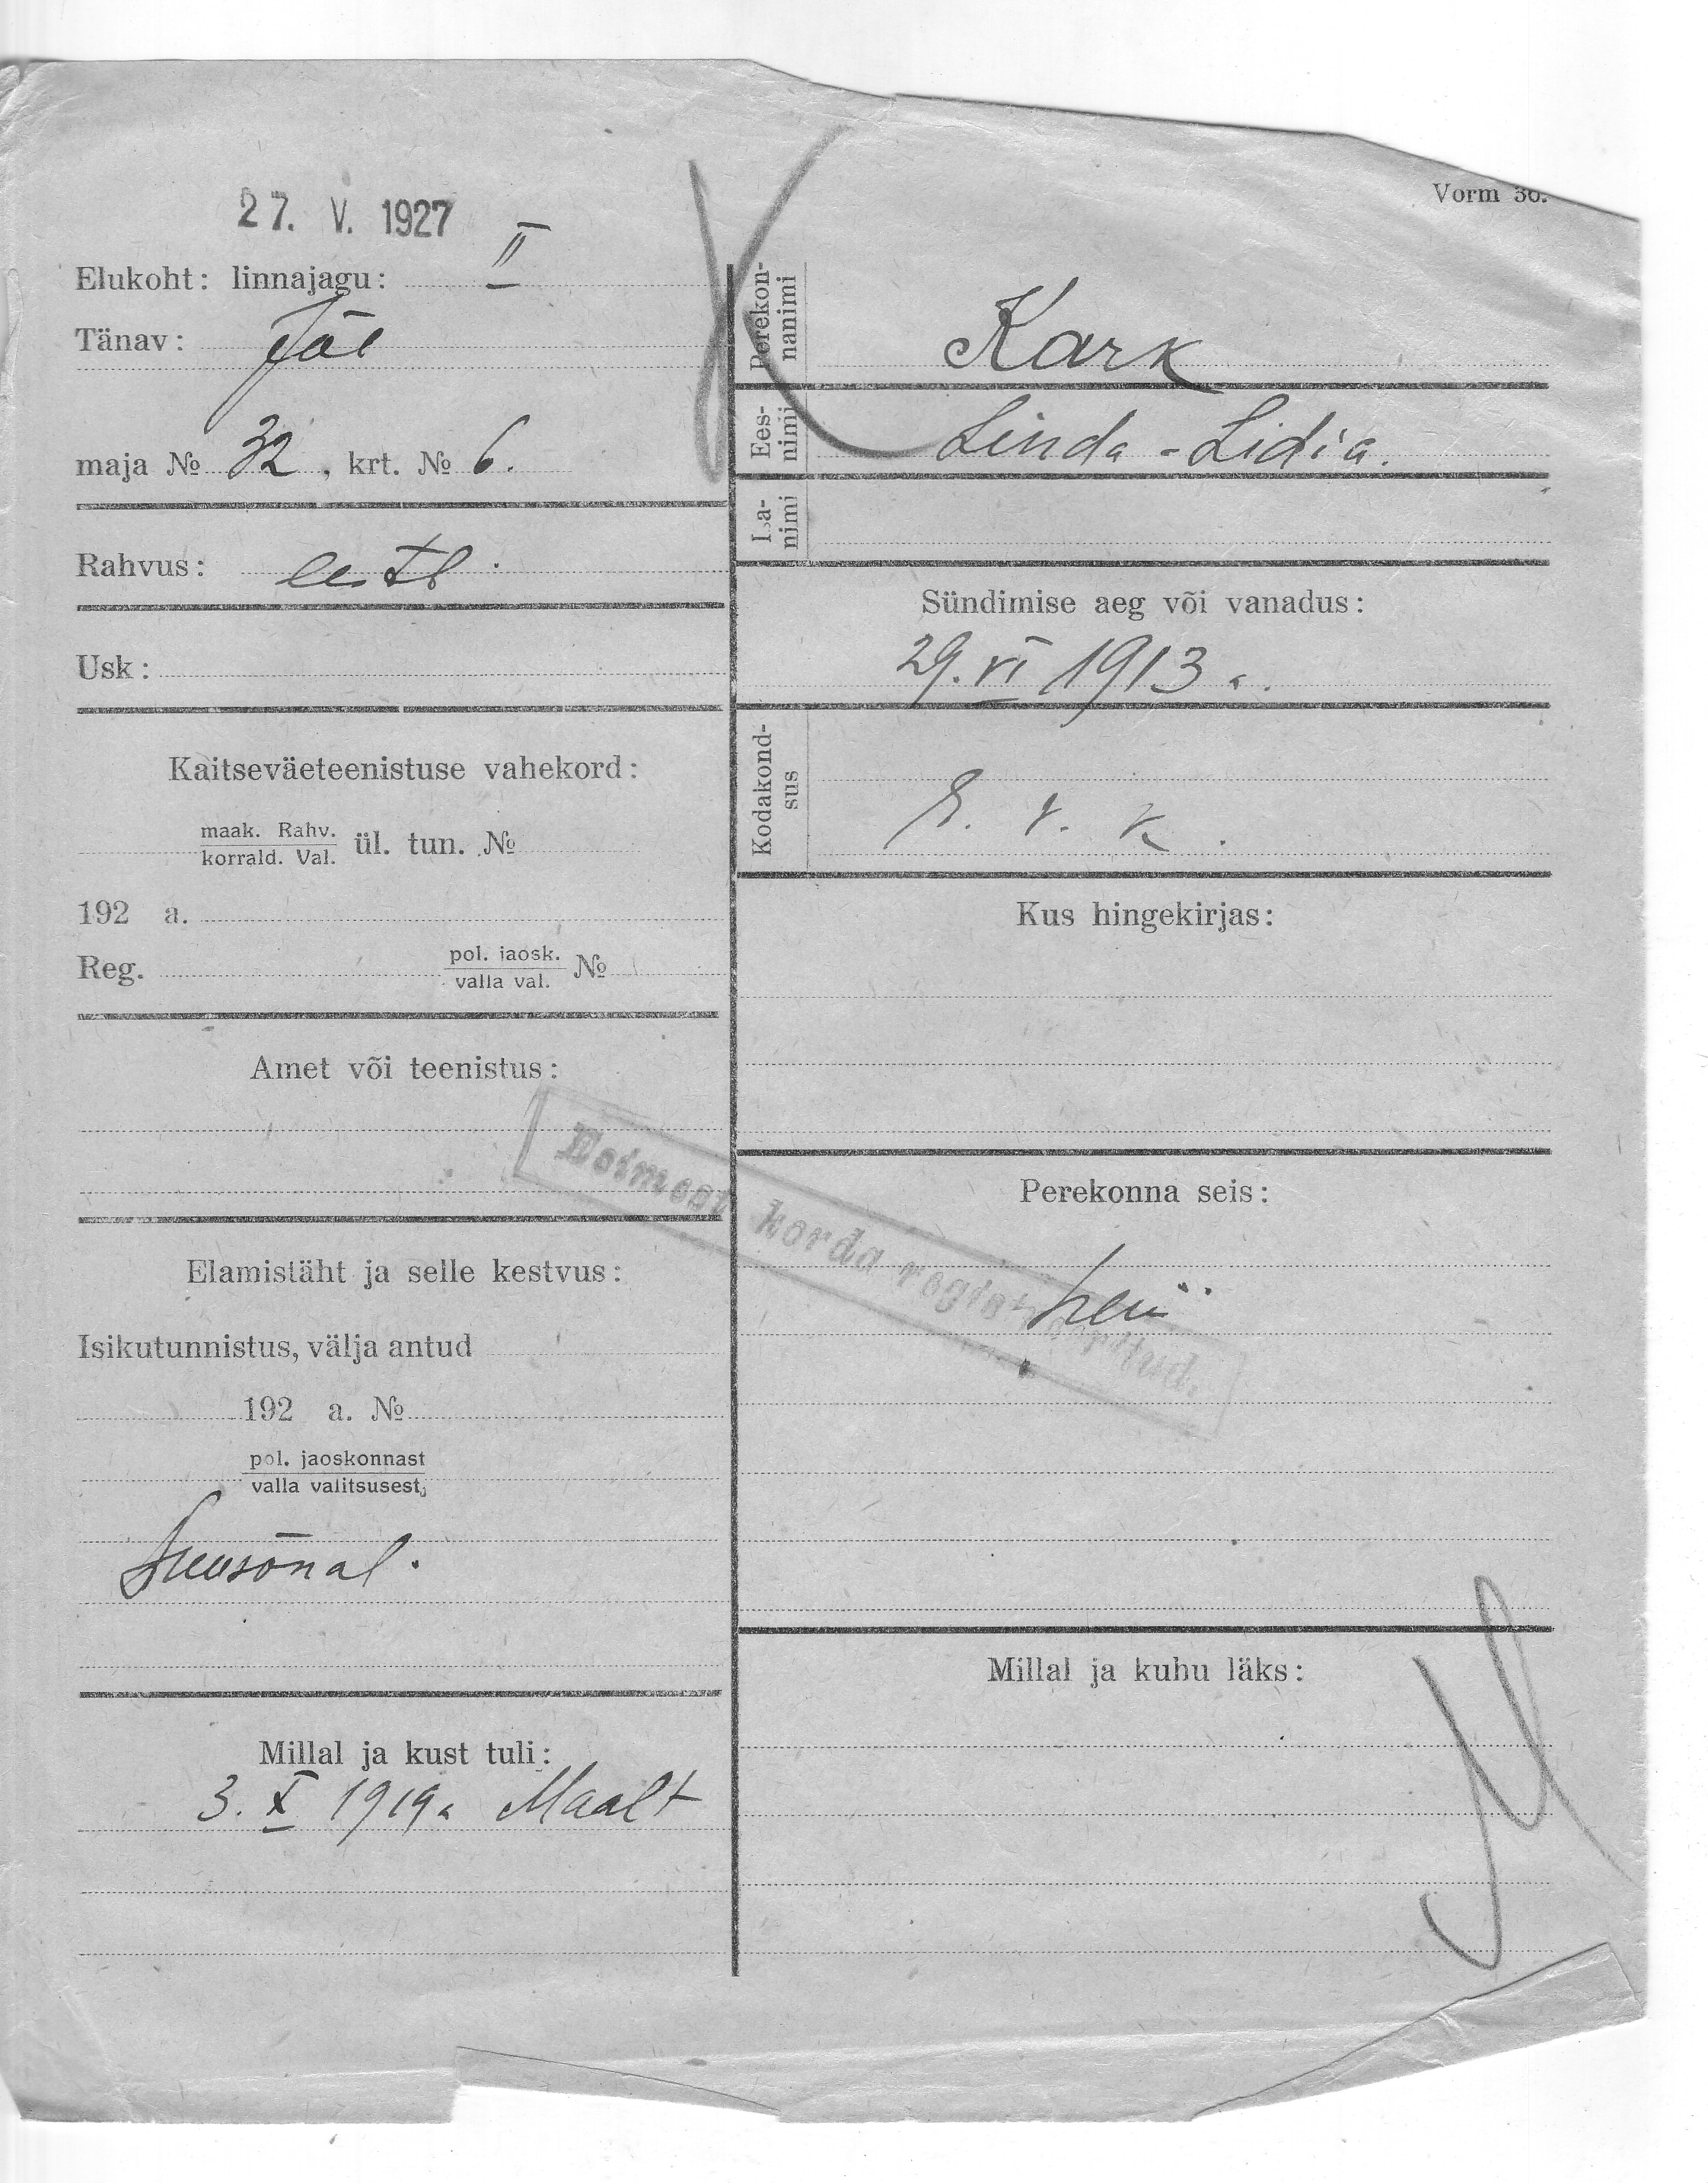 27. V. 1927
Vorm 30.
Elukoht: linnajagu: II
Tänav: Jõe
maja № 32, krt. № 6.
Rahvus: eesti.
Usk:
Kaitseväeteenistuse vahekord:
maak. Rahv.
korrald. Val. ül. tun. №
192 a.
Reg. pol. jaosk.
valla val. №
Amet või teenistus:
Elamistäht ja selle kestvus:
Isikutunnistus, välja antud
192 a. №
pol. jaoskonnast
valla valitsusest,
Suusõnal.
Millal ja kust tuli:
3. X 1919 a Maalt
Perekon-
nanimi
Kark
Ees-
nimi
Linda-Lidia.
Isa-
nimi
Sündimise aeg või vanadus:
29. VI 1913 a.
Kodakond-
sus
E. V. K.
Kus hingekirjas:
Perekonna seis:
Esimest korda registreeritud.
Millal ja kuhu läks: